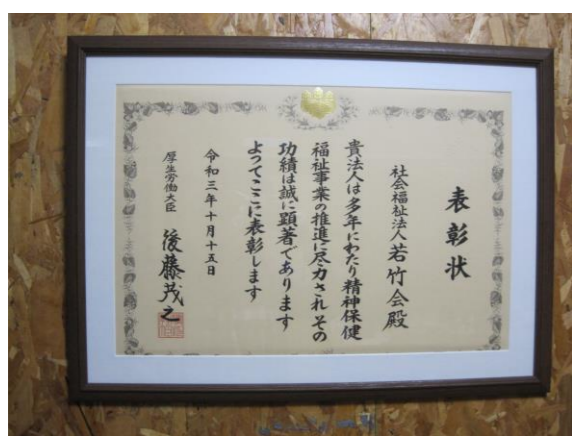 表彰状
社会福祉法人若竹会殿
貴法人は多年にわたり精神保健
福祉事業の推進に尽力されその
功績は誠に顕著であります
よってここに表彰します
令和三年十月十五日
厚生労働大臣 後藤茂之